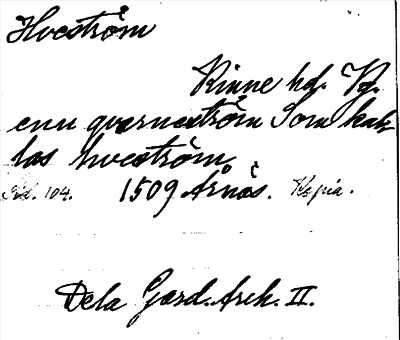 Hveström
Kinne hd. Vg.
enu qvarnaström Som kal-
las hveström
Sid. 104. 1509 Årnäs. Kopia.
Dela Gard. Arch. II.